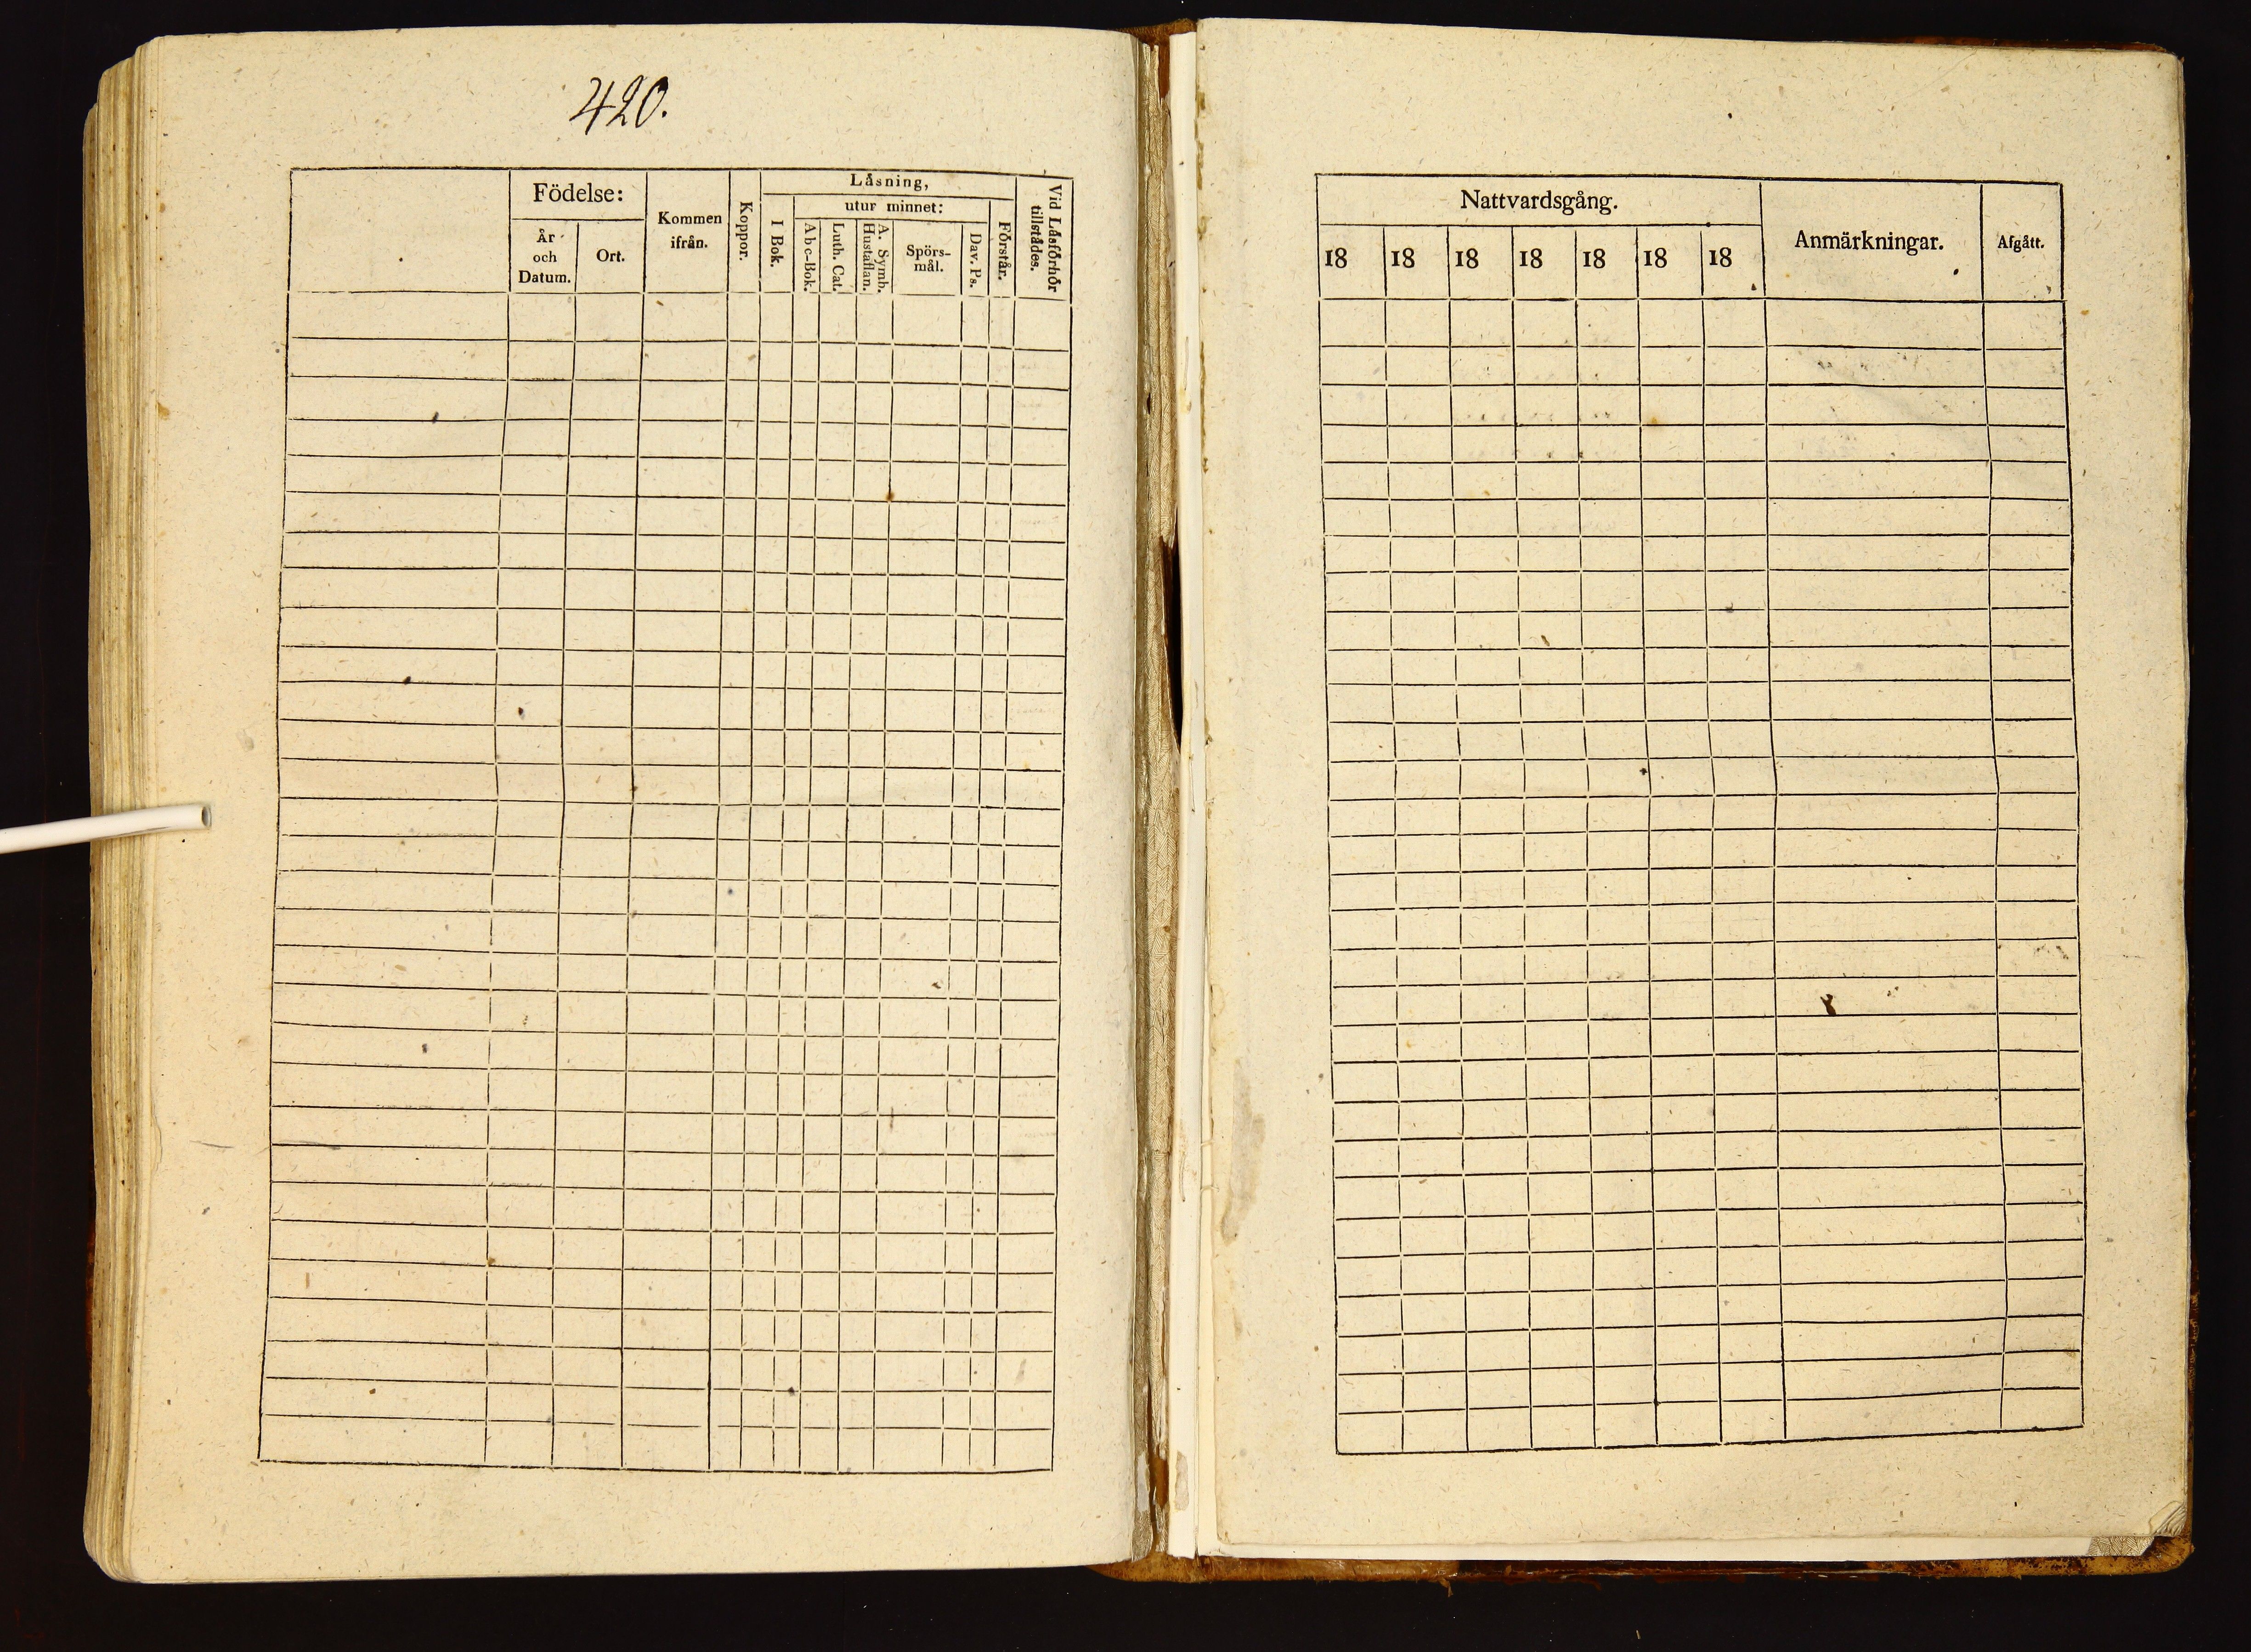 420.
Födelse:
År och Datum.
Ort.
Kommen ifrån.
Koppor.
Låsning,
I Bok.
utur minnet:
Abc-Bok.
Luth. Cat.
A. Symb. Hustaflan.
Spörs-
mål.
Dav. Ps.
Förstår.
Vid Låsförhör
tillstådes.
Nattvardsgång.
18 18 18 18 18 18 18
Anmärkningar.
Afgått.